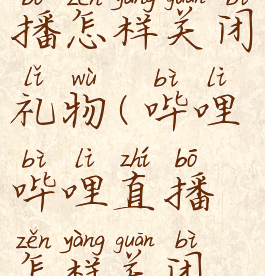 bō zěn yàng guān bì
播怎样关闭
lǐ wù bì lì
礼物(哔哩
bì lì zhí bō
哔哩直播
zěn yàng guān bì
怎样关闭